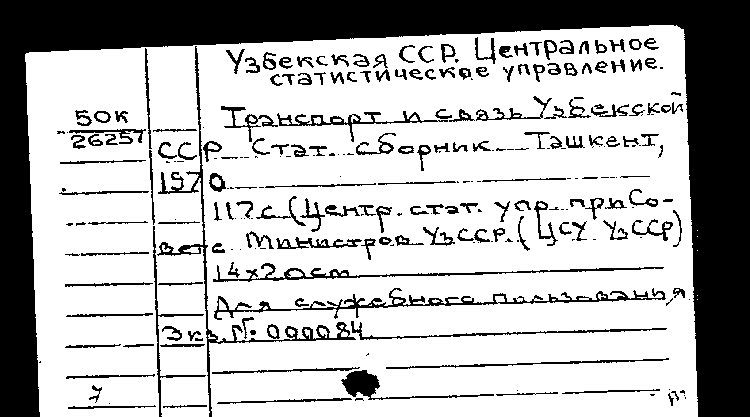 Узбекская ССР. Центральное
статистическое управление.
50к
26257
Транспорт и связь Узбекской
ССР Стат. сборник Ташкент,
1970
117с (Центр. стат. упр. при Со-
вете Министров УзССР. (ЦСУ УзССР)
14х20см
Для служебного пользованья
Экз. №: 000084
7